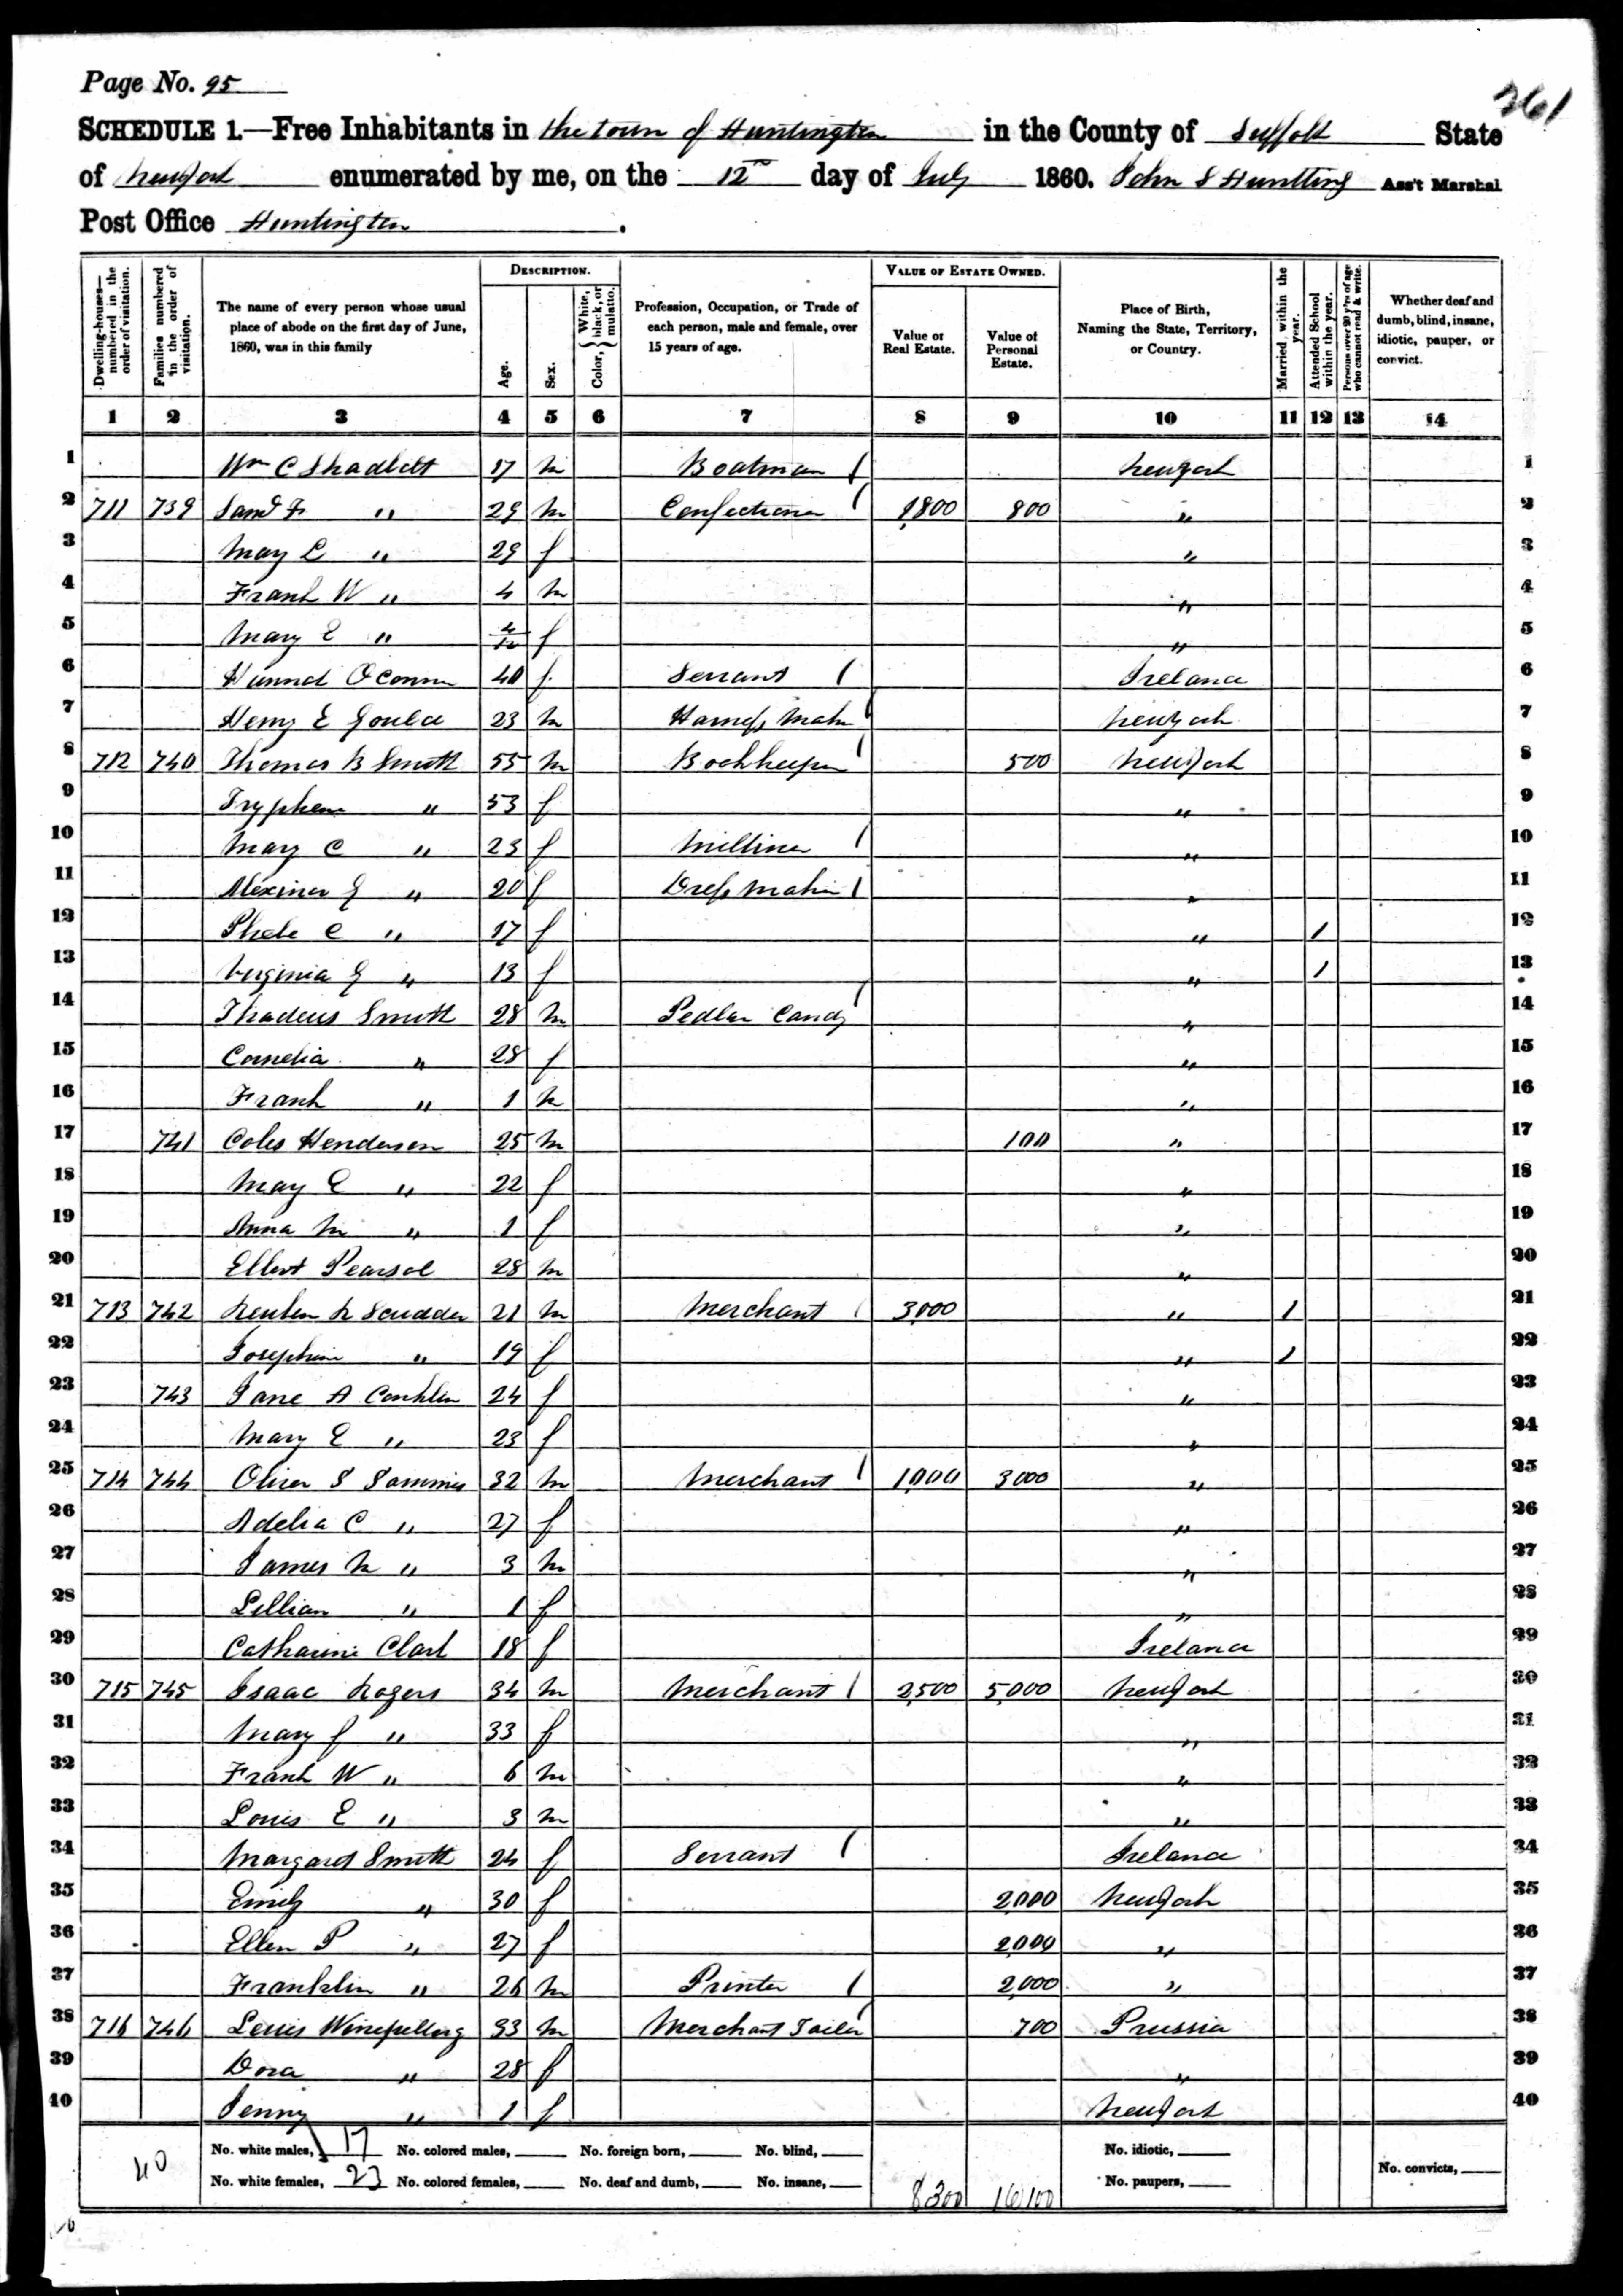 Page No. 95
261
SCHEDULE 1.—Free Inhabitants in the town of Huntington in the County of Suffolk State
of New York enumerated by me, on the 12th day of July 1860. John S Huntting Ass't Marshal
Post Office Huntington.
Dwelling-houses—numbered in the order of visitation.
Families numbered in the order of visitation.
The name of every person whose usual place of abode on the first day of June, 1860, was in this family
DESCRIPTION.
Age.
Sex.
Color, { White, black, or mulatto.
Profession, Occupation, or Trade of each person, male and female, over 15 years of age.
VALUE OF ESTATE OWNED.
Value of Real Estate.
Value of Personal Estate.
Place of Birth, Naming the State, Territory, or Country.
Married within the year.
Attended School within the year.
Persons over 20 y'rs of age who cannot read & write.
Whether deaf and dumb, blind, insane, idiotic, pauper, or convict.
1 2 3 4 5 6 7 8 9 10 11 12 13 14
1 Wm C Shadbolt 17 m Boatman New York 1
2 711 739 Saml F " 29 m Confectioner 1,800 800 " 2
3 Mary L " 29 f " 3
4 Frank W " 4 m " 4
5 Mary E " 4/12 f " 5
6 OConnor 40 f Servant Ireland 6
7 Henry E Gould 23 m Harness Maker New York 7
8 712 740 Thomas B Smith 55 m Bookkeeper 500 New York 8
9 Tryphena " 53 f " 9
10 Mary C " 23 f Milliner " 10
11 G " 20 f Dress Maker " 11
12 Phebe C " 17 f " 1 12
13 Virginia G " 13 f " 1 13
14 Thadeus Smith 28 m Pedlar Candy " 14
15 Cornelia " 28 f " 15
16 Frank " 1 m " 16
17 741 Coles Henderson 25 m 100 " 17
18 Mary E " 22 f " 18
19 Anna M " 1 f " 19
20 Elbert Pearsol 28 m " 20
21 713 742 Reuben R Scudder 21 m Merchant 3,000 " 1 21
22 Josephine " 19 f " 1 22
23 743 Jane A Conklin 24 f " 23
24 Mary E " 23 f " 24
25 714 744 Oliver S Sammis 32 m Merchant 1,000 3,000 " 25
26 Adelia C " 27 f " 26
27 James " 3 m " 27
28 Lillian " 1 f " 28
29 Catharine Clark 18 f Ireland 29
30 715 745 Isaac Rogers 34 m Merchant 2,500 5,000 New York 30
31 Mary J " 33 f " 31
32 Frank W " 6 m " 32
33 Louis E " 3 m " 33
34 Margaret Smith 24 f Servant Ireland 34
35 Emily " 30 f 2,000 New York 35
36 Ellen P " 27 f 2,000 " 36
37 Franklin " 26 m Printer 2,000 " 37
38 716 746 Lewis 33 m Merchant Tailor 700 Prussia 38
39 Dora " 28 f " 39
40 Jenny " 1 f New York 40
40
No. white males, 17 No. colored males, No. foreign born, No. blind, No. idiotic,
No. white females, 23 No. colored females, No. deaf and dumb, No. insane, 8300 16100 No. paupers, No. convicts,